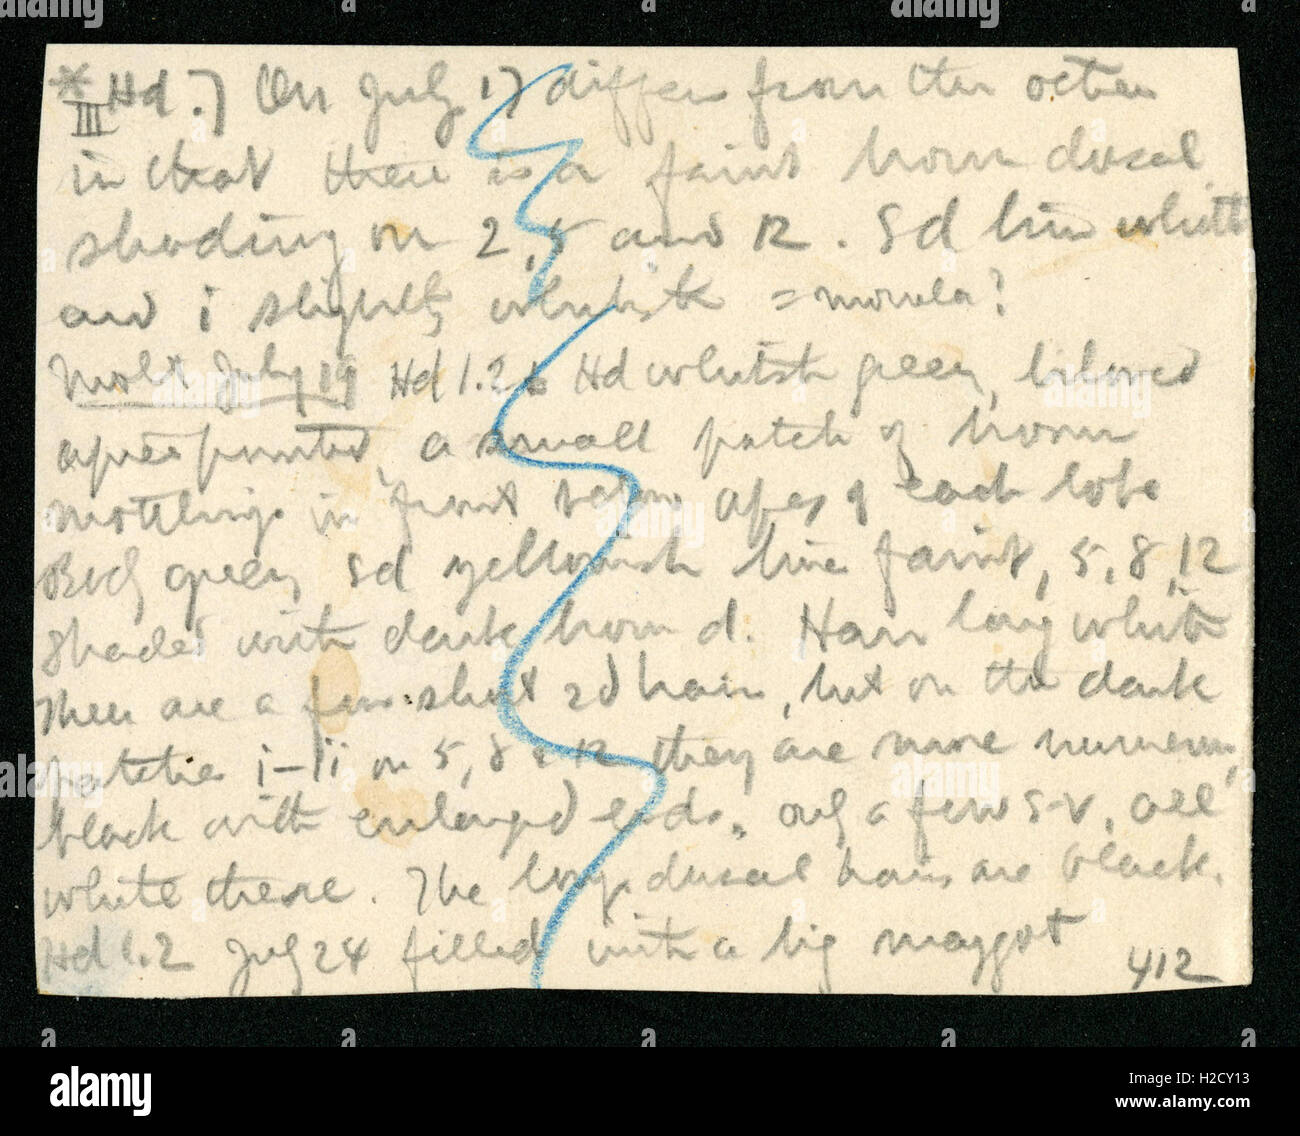 * III Hd .7 On July 17 differs from the other
in that there is a faint brown dorsal
shading on 2, 5 and 12. Sd line whitish
and i slightly whitish = morula?
Molt July 19 Hd 1.26 Hd whitish green, bilobed
apices pointed, a small patch of brown
mottlings in front before apex of each lobe
Body green, sd yellowish line faint, 5, 8, 12
shaded with dark brown d. Hair long white
There are a few short 2d hairs, but on the dark
patches i-ii on 5, 8 & 12 they are more numerous,
black with enlarged ends, only a few s-v, all
white these. The long dorsal hairs are black.
Hd 1.2 July 24 filled with a big maggot
412
a
alamy stock photo
H2CY13
www.alamy.com